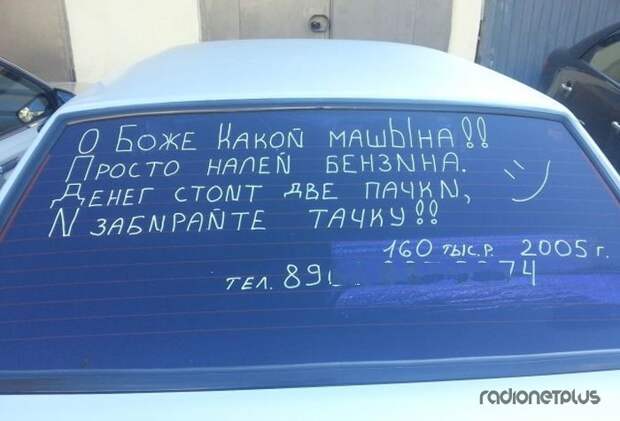 О Боже какой машЫна!!
Просто налей бензина.
Денег стоит две пачки,
И забирайте тачку!!
160 тыс.р. 2005 г.
тел. 89
74
radionetplus